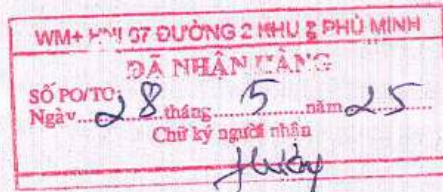 WM+ HNI 97 ĐƯỜNG 2 KHU 2 PHÙ MINH
ĐÃ NHẬN HÀNG
SỐ PO/TO:
Ngày 28 tháng 5 năm 25
Chữ ký người nhận